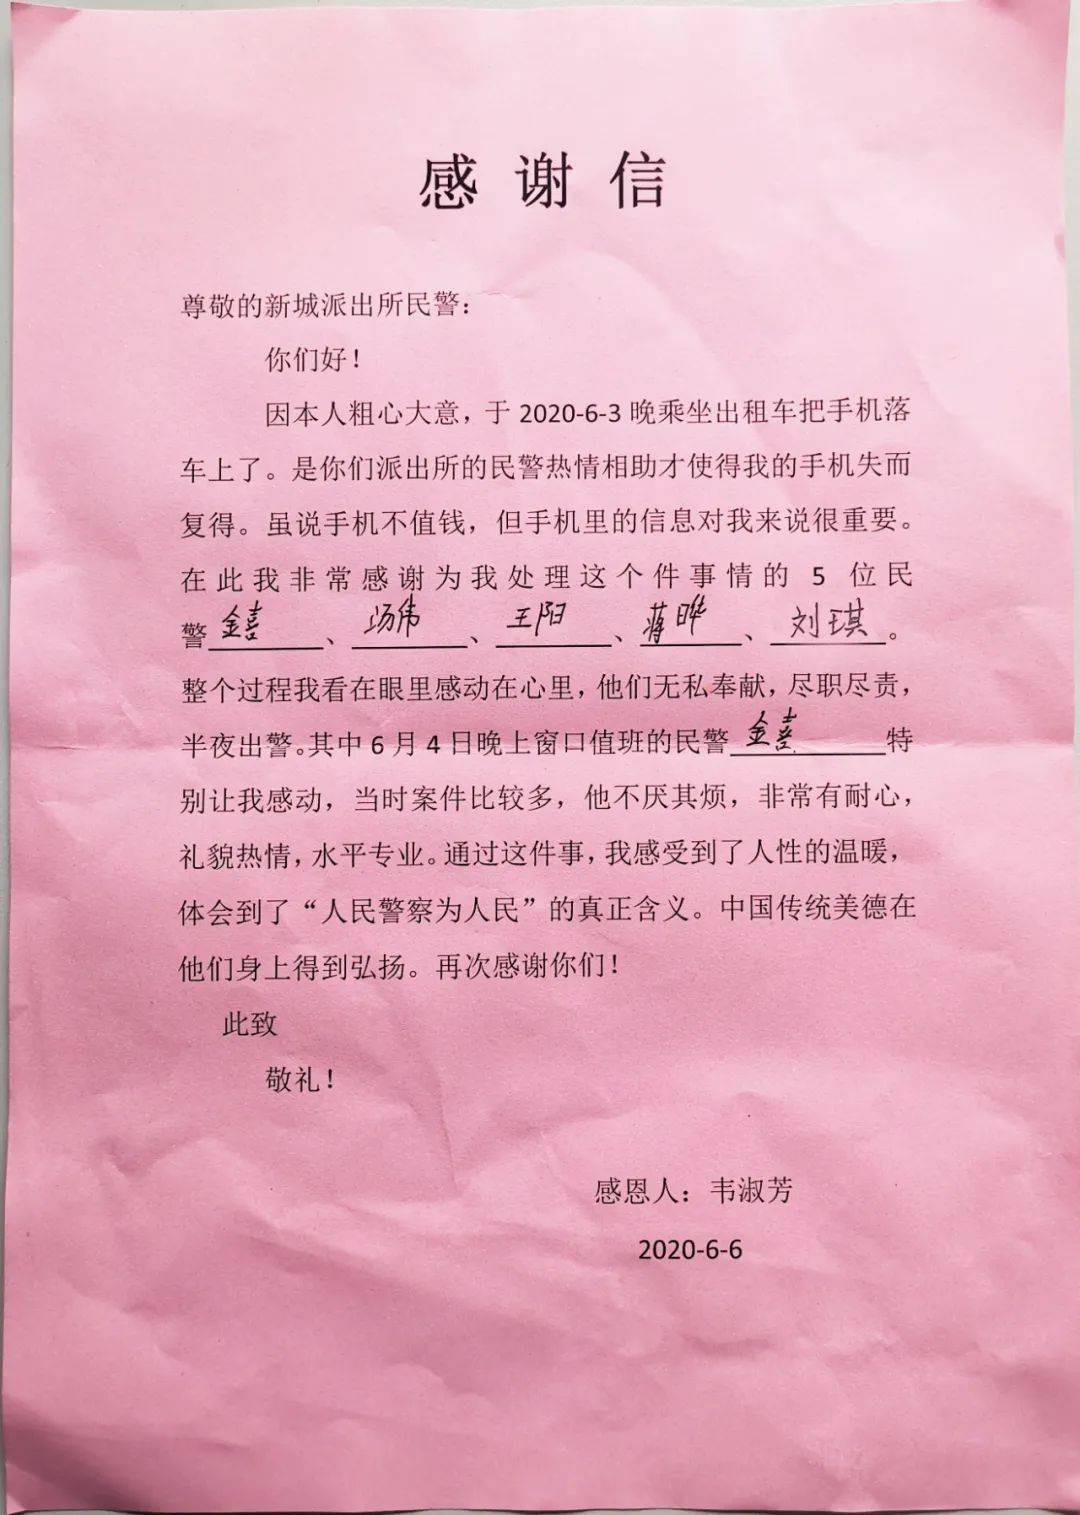 感谢信
尊敬的新城派出所民警：
你们好！
因本人粗心大意，于 2020-6-3 晚乘坐出租车把手机落
车上了。是你们派出所的民警热情相助才使得我的手机失而
复得。虽说手机不值钱，但手机里的信息对我来说很重要。
在此我非常感谢为我处理这个件事情的 5 位民
警金喜、汤伟、王阳、蒋晔、刘琪。
整个过程我看在眼里感动在心里，他们无私奉献，尽职尽责，
半夜出警。其中 6 月 4 日晚上窗口值班的民警金喜特
别让我感动，当时案件比较多，他不厌其烦，非常有耐心，
礼貌热情，水平专业。通过这件事，我感受到了人性的温暖，
体会到了“人民警察为人民”的真正含义。中国传统美德在
他们身上得到弘扬。再次感谢你们！
此致
敬礼！
感恩人：韦淑芳
2020-6-6